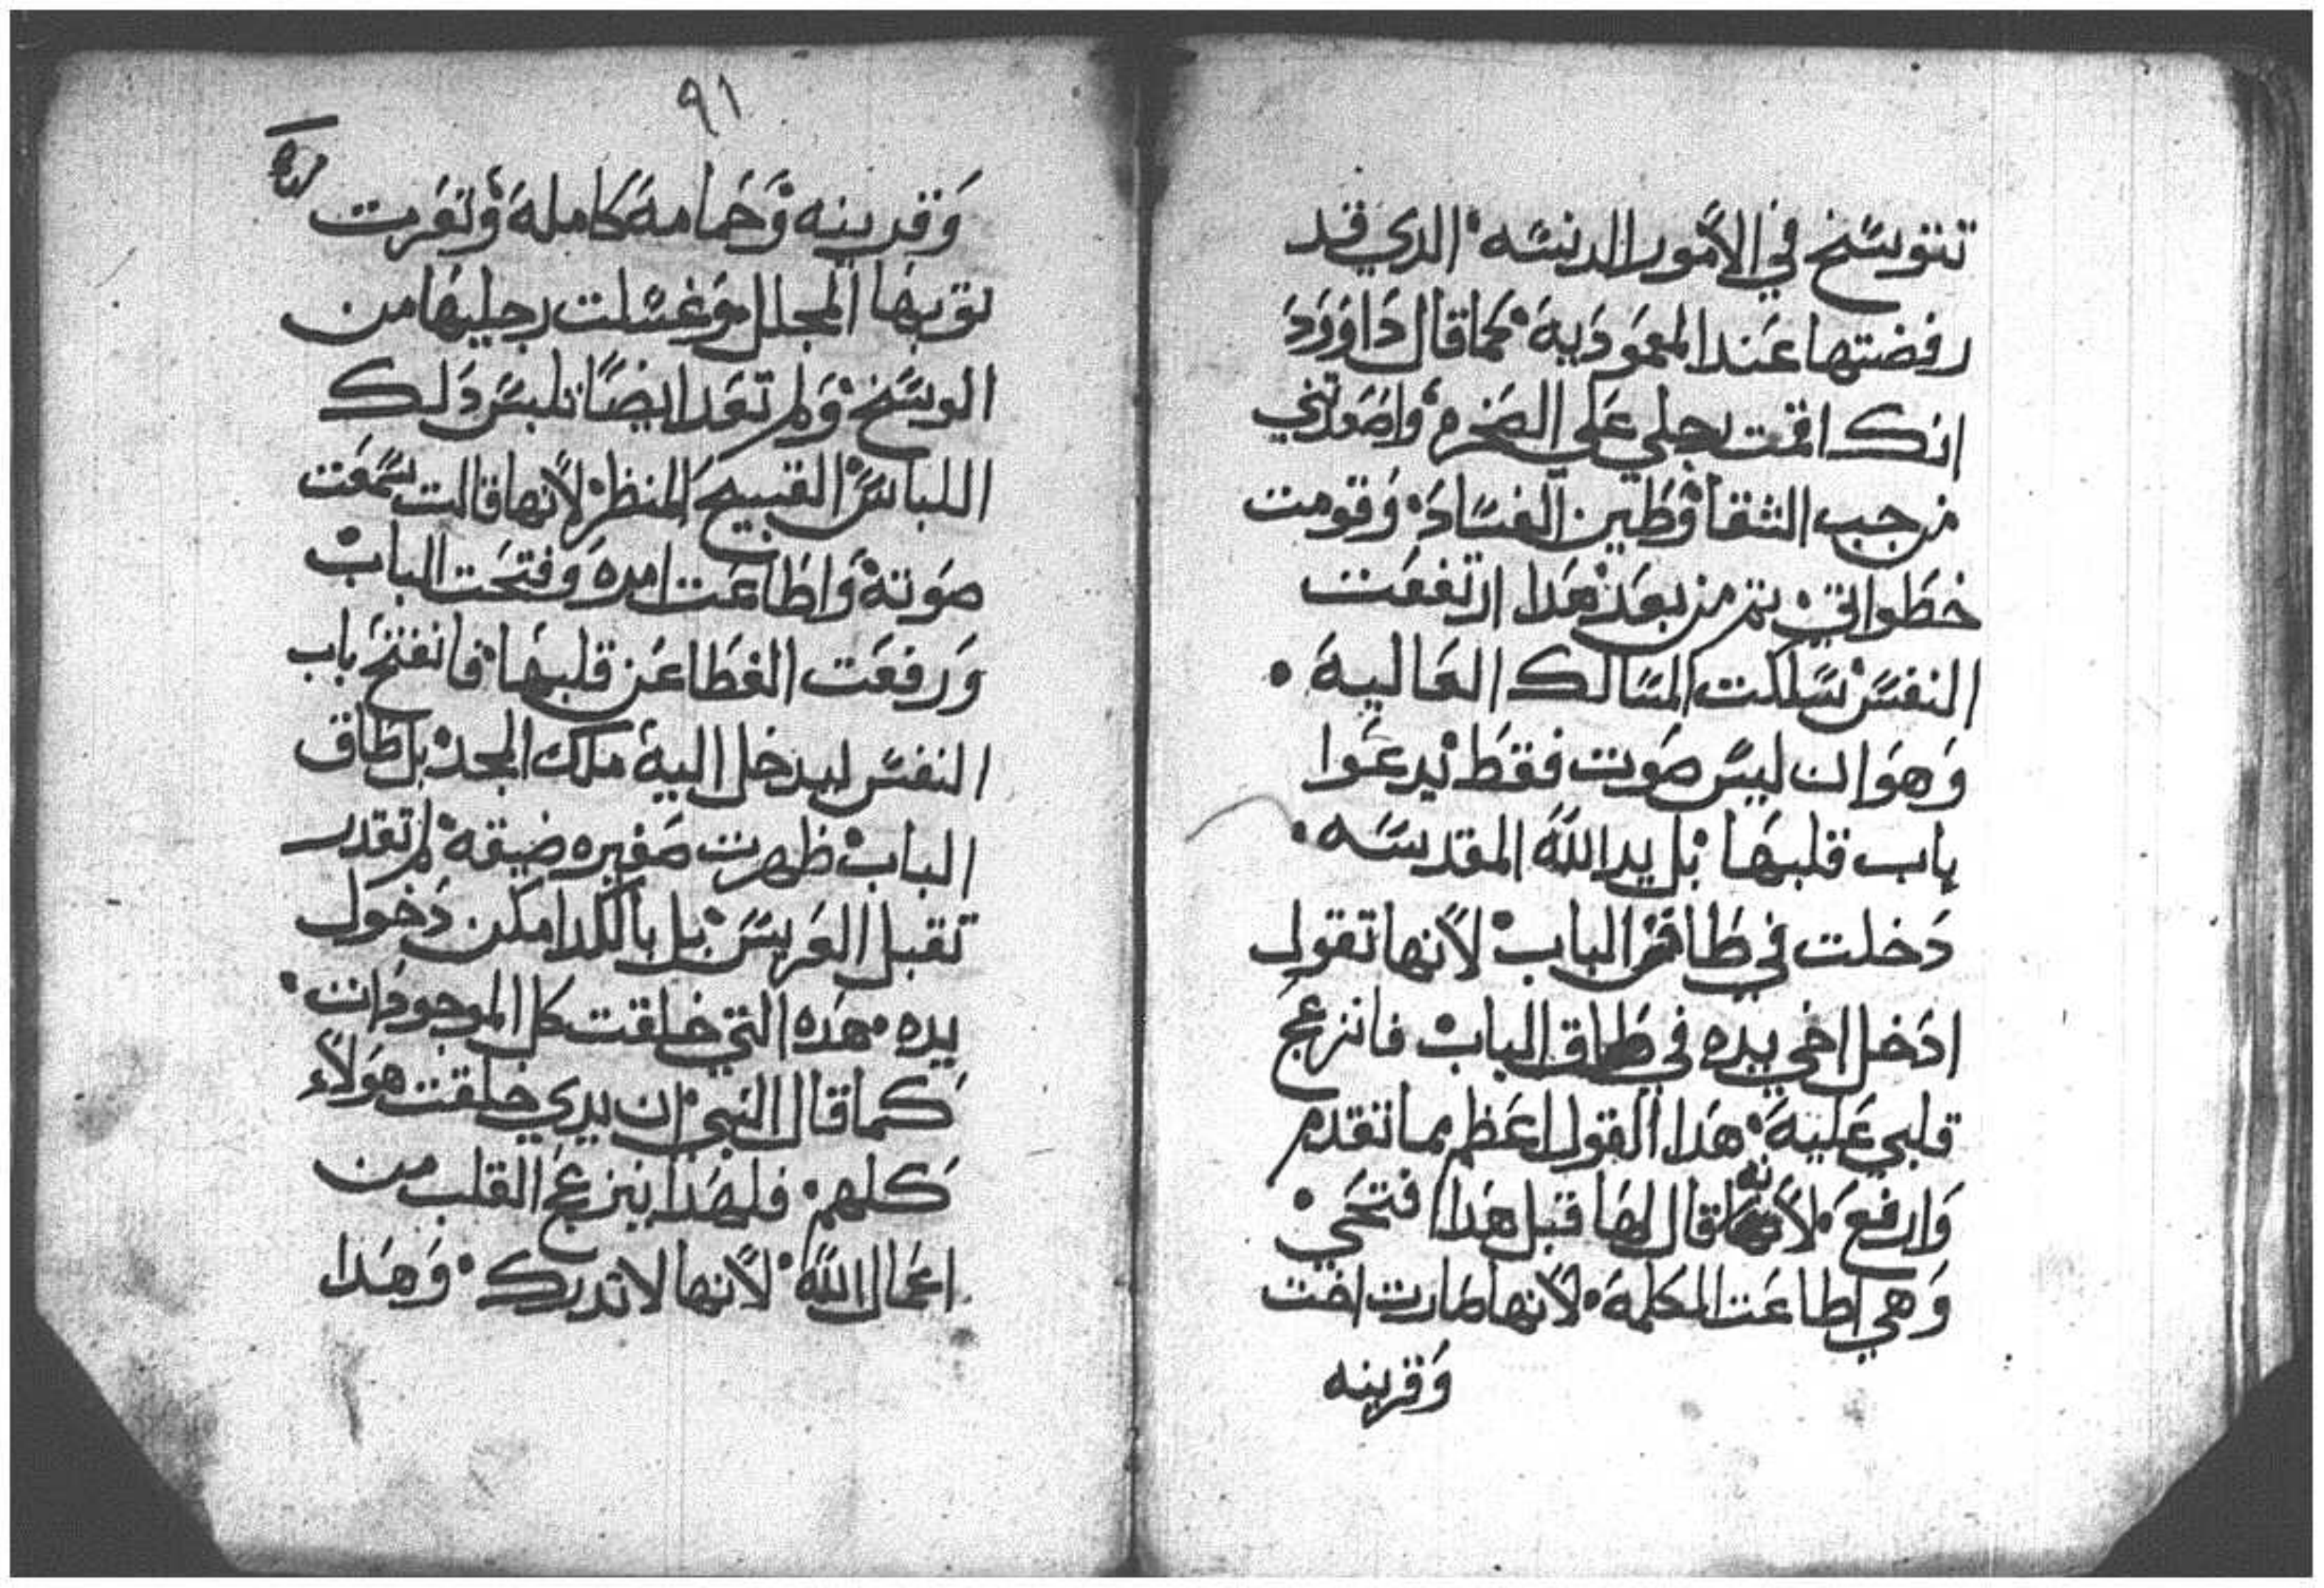 تتوسخ في الأمور الدنسه الدي قد
رفضتها عند المعمودية كما قال داوود
انك اقمت رجلي على الصخره واصعدتني
من جب الشقا وطين الفساد وقومت
خطواتي ثم من بعد هدا ارتفعت
النفس سلكت المسالك العالية
وهو ان ليس صوت فقط يدعوا
باب قلبها بل يد الله المقدسه
دخلت في طاقة الباب لأنها تقول
ادخل اخي يده في طاق الباب فانزعج
قلبي علية هدا القول اعظم مما تقدم
وارفع لأنه قال لها قبل هدا افتحي
وهي اطاعت الكلمة لأنها صارت اخت
وقرينه
٩١
وقرينه وحمامة كاملة وتعرت
ثوبها المجلل وغسلت رجليها من
الوسخ ولم تعد ايضًا تلبس دلك
اللباس القبيح المنظر لأنها قالت سمعت
صوتة واطاعت امره وفتحت الباب
ورفعت الغطا عن قلبها فانفتح باب
النفس ليدخل الية ملك المجد بل طاق
الباب ظهرت صغيره ضيقة لم تقدر
تقبل العريس بل بالكد امكن دخول
يده هده التي خلقت كل الموجودات
كما قال النبي ان يدي خلقت هولاء
كلهم فلهدا ينزعج القلب من
اعمال الله لأنها لا تدرك وهدا